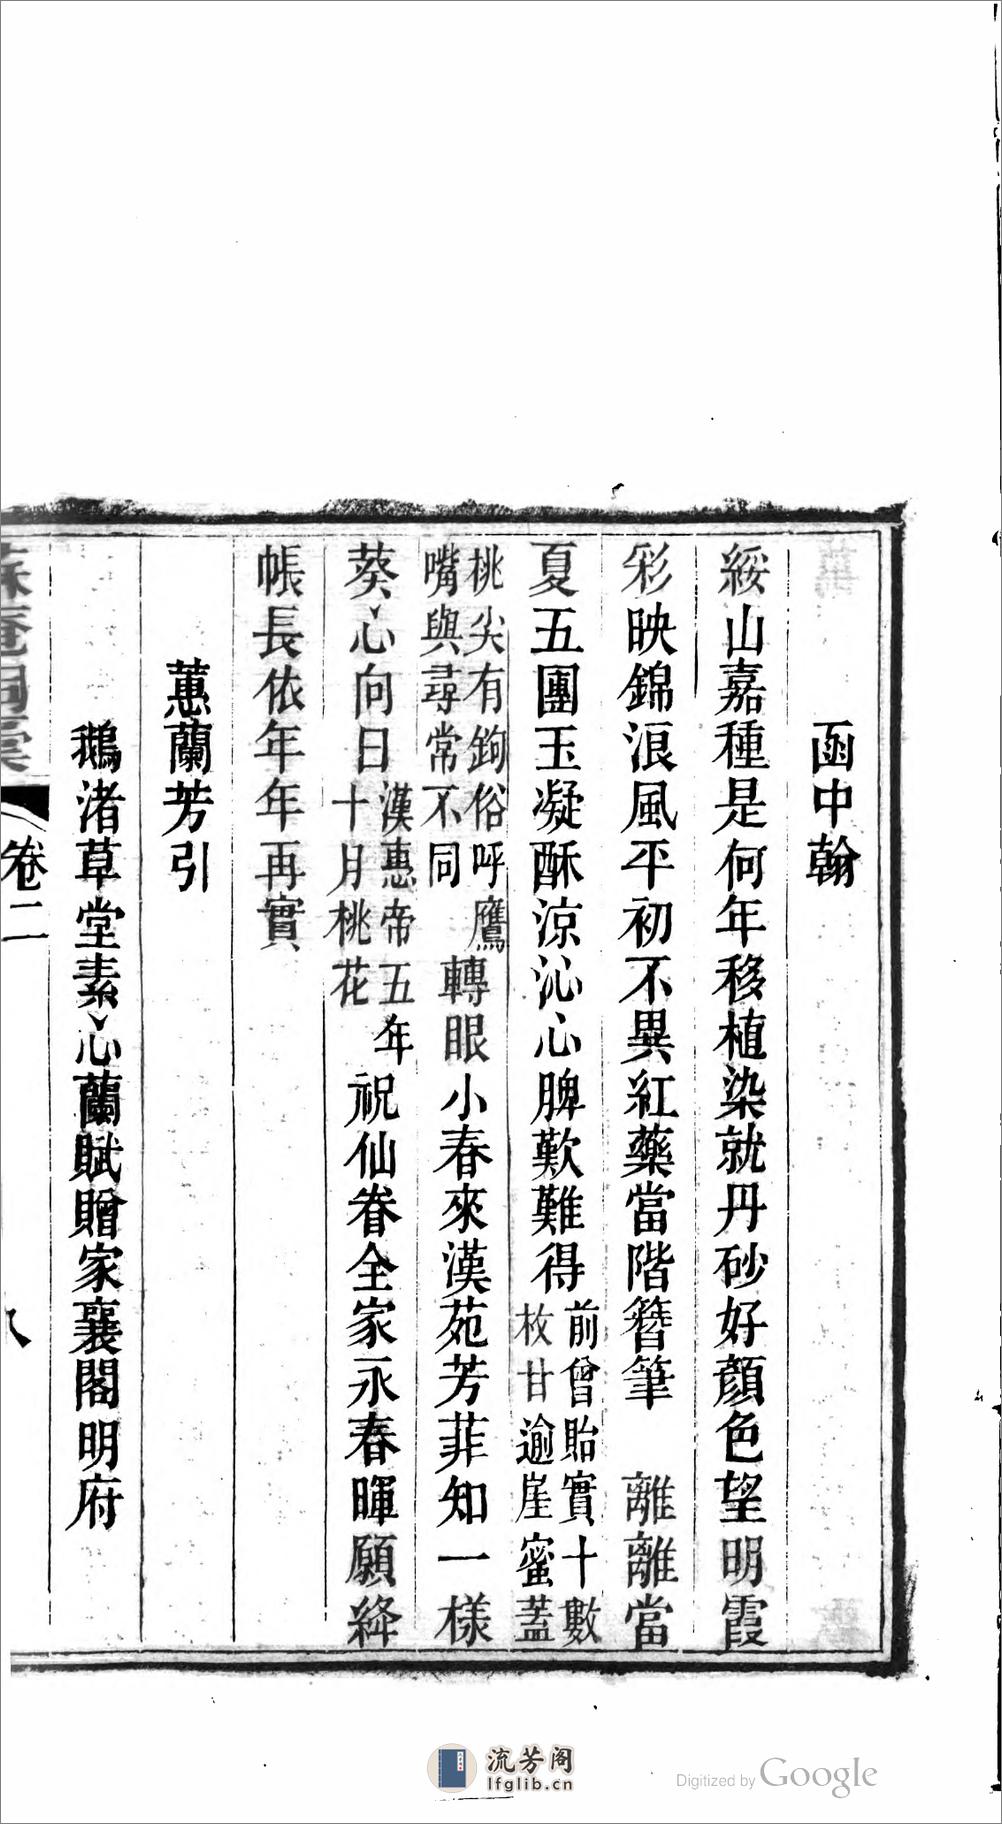 函中翰
綏山嘉種是何年移植染就丹砂好顏色望明霞
彩映錦浪風平初不異紅藥當階簪筆　離離當
夏五團玉凝酥涼沁心脾歎難得前曾貽實十數枚甘逾崖蜜蓋
桃尖有鉤俗呼鷹嘴與尋常不同轉眼小春來漢苑芳菲知一樣
葵心向日漢惠帝五年十月桃花祝仙眷全家永春暉願絳
帳長依年年再實
蕙蘭芳引
鵝渚草堂素心蘭賦贈家襄閣明府
卷二
八
流芳阁
lfglib.cn
Digitized by Google